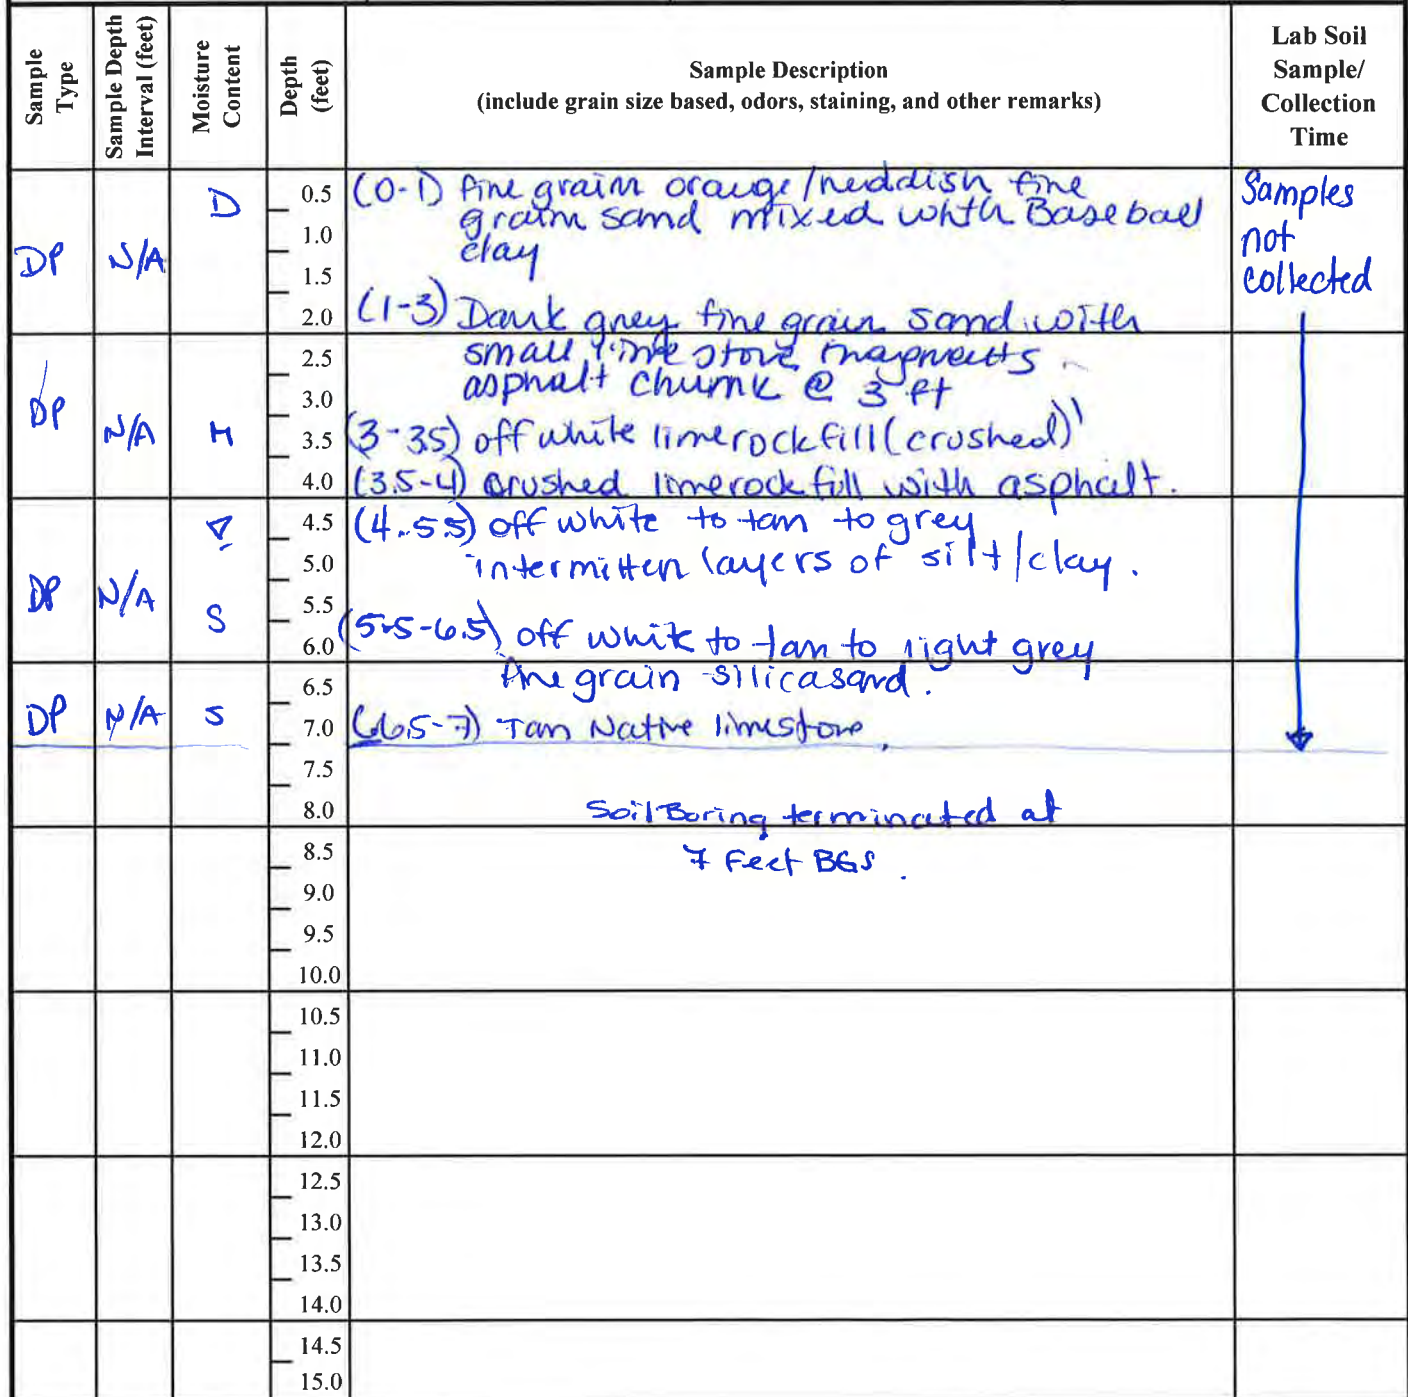 Sample Type
Sample Depth Interval (feet)
Moisture Content
Depth (feet)
Sample Description
(include grain size based, odors, staining, and other remarks)
Lab Soil
Sample/
Collection
Time
D
0.5
(0-1) fine grain orange/reddish fine
Samples
grain sand mixed with Baseball
1.0
not
clay
DP
N/A
1.5
collected
2.0
(1-3) Dark grey fine grain sand with
2.5
small limestone fragments
asphalt chunk @ 3 ft
3.0
DP
N/A
M
3.5
(3-3.5) off white limerock fill (crushed)
4.0
(3.5-4) crushed limerock fill with asphalt.
4.5
(4-5.5) off white to tan to grey
5.0
intermitten layers of silt/clay.
DP
N/A
S
5.5
6.0
(5.5-6.5) off white to tan to light grey
6.5
fine grain silica sand.
DP
N/A
S
7.0
(6.5-7) Tan Native limestone.
7.5
8.0
Soil Boring terminated at
8.5
7 Feet BGS.
9.0
9.5
10.0
10.5
11.0
11.5
12.0
12.5
13.0
13.5
14.0
14.5
15.0